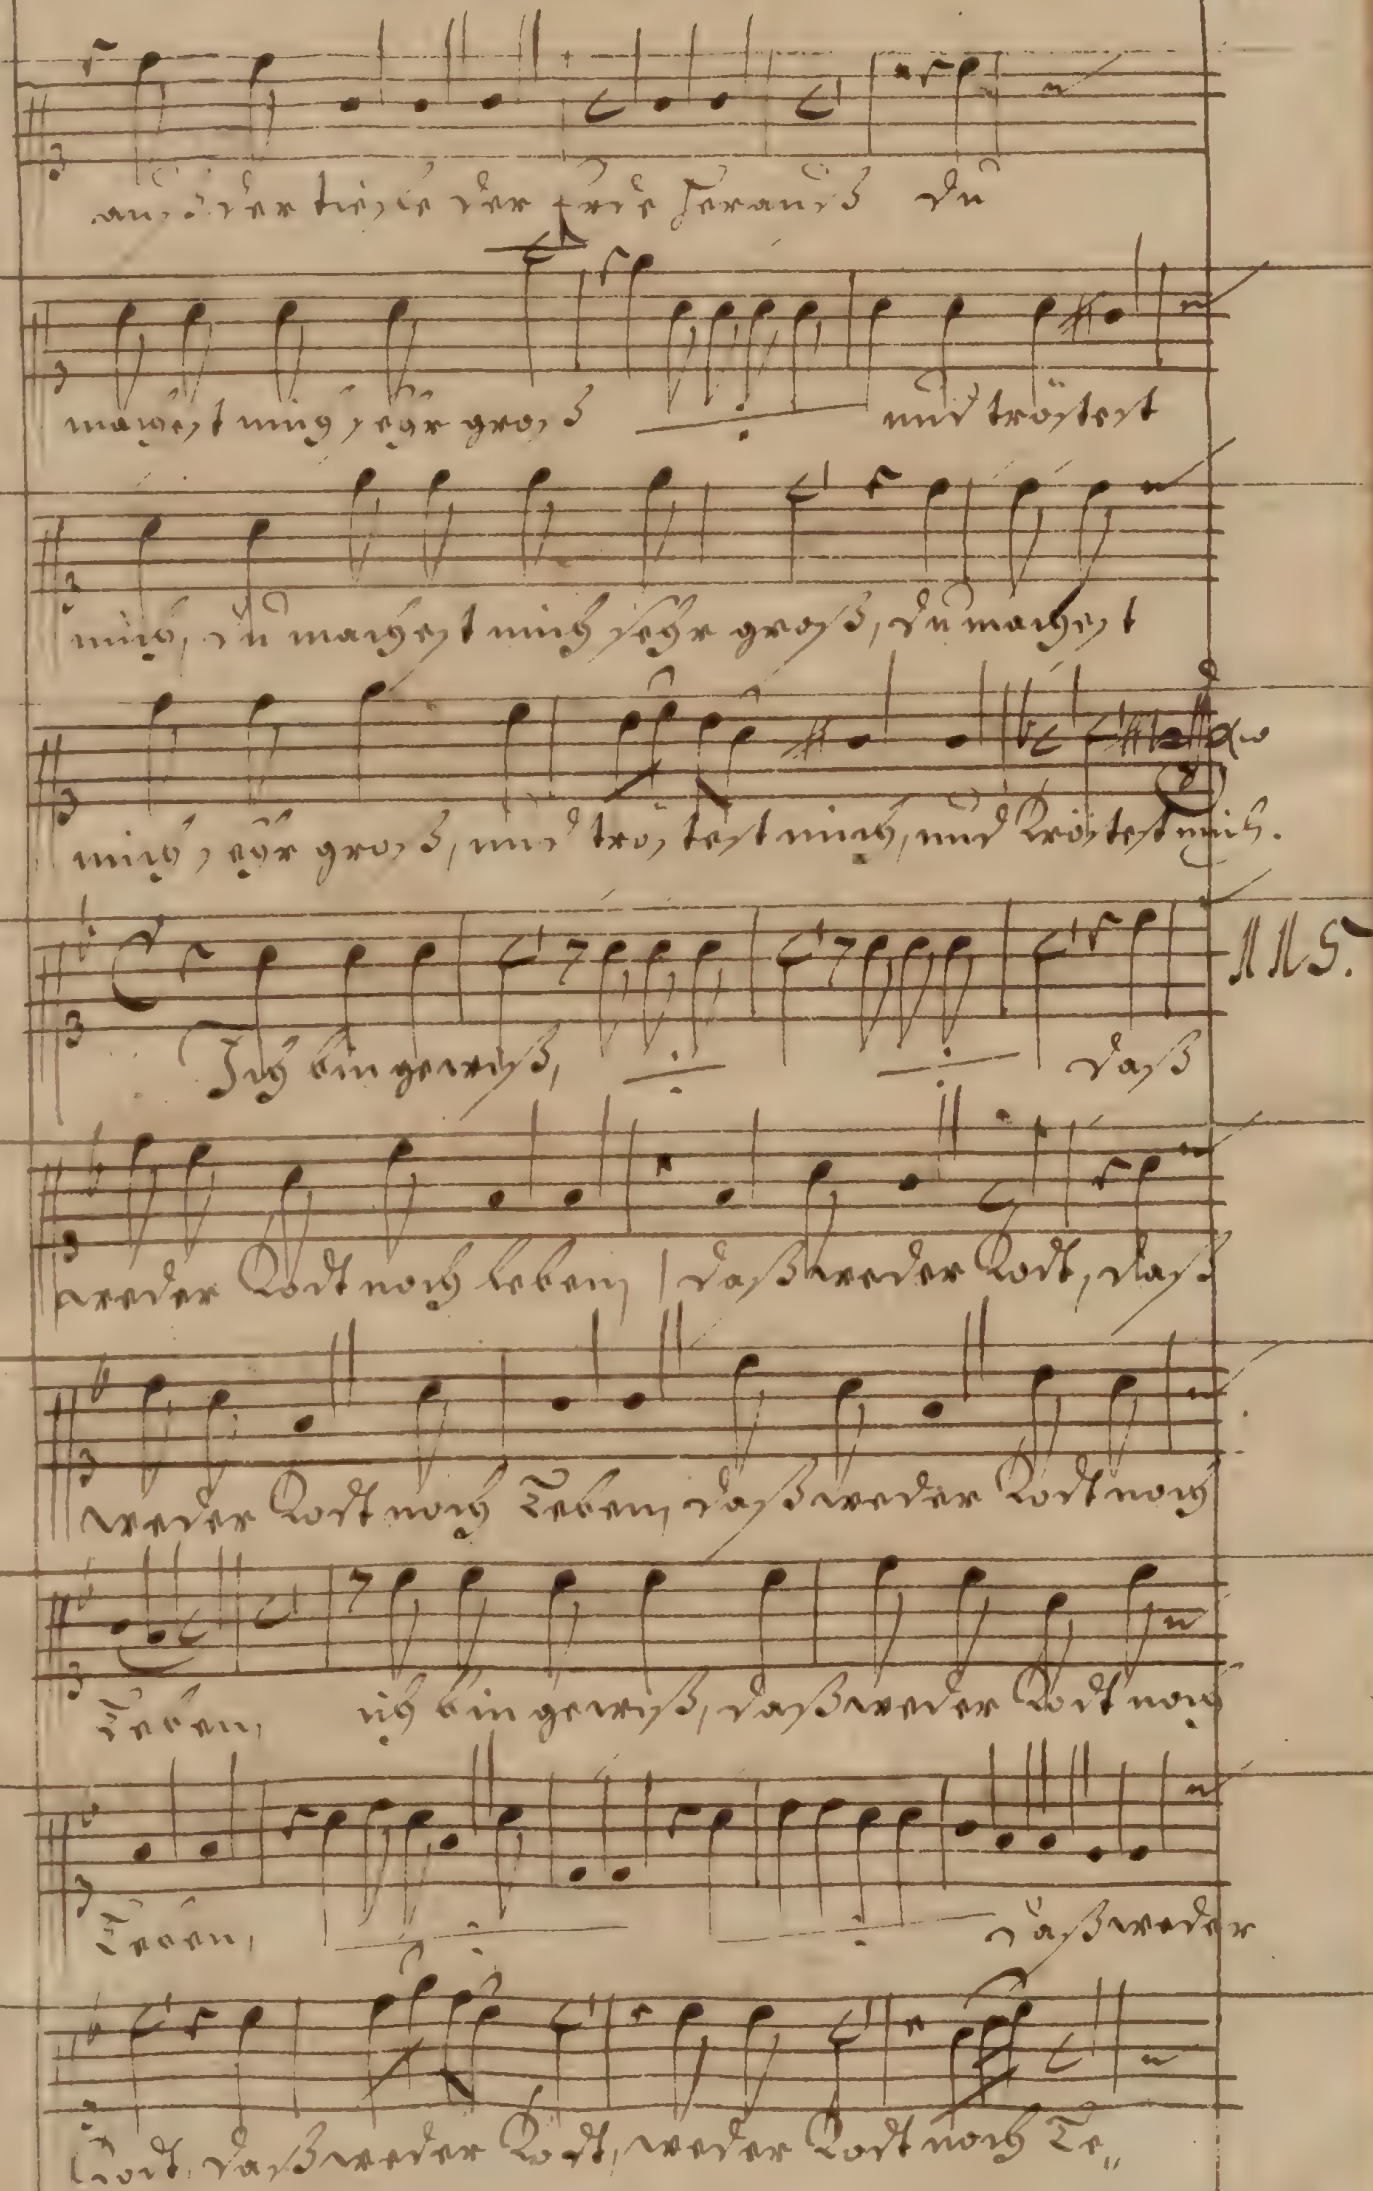 auß der tieffe der Erde herauß du
machest mich sehr groß und tröstest
mich, du machest mich sehr groß, du machest
mich sehr groß, und tröstest mich, und Tröstest mich.
115.
Ich bin gewiß, daß
weder Todt noch leben, daß weder Todt, daß
weder Todt noch Leben, daß weder Todt noch
Leben, ich bin gewiß, daß weder Todt noch
Leben, daß weder
Todt, daß weder Todt, weder Todt noch Le„